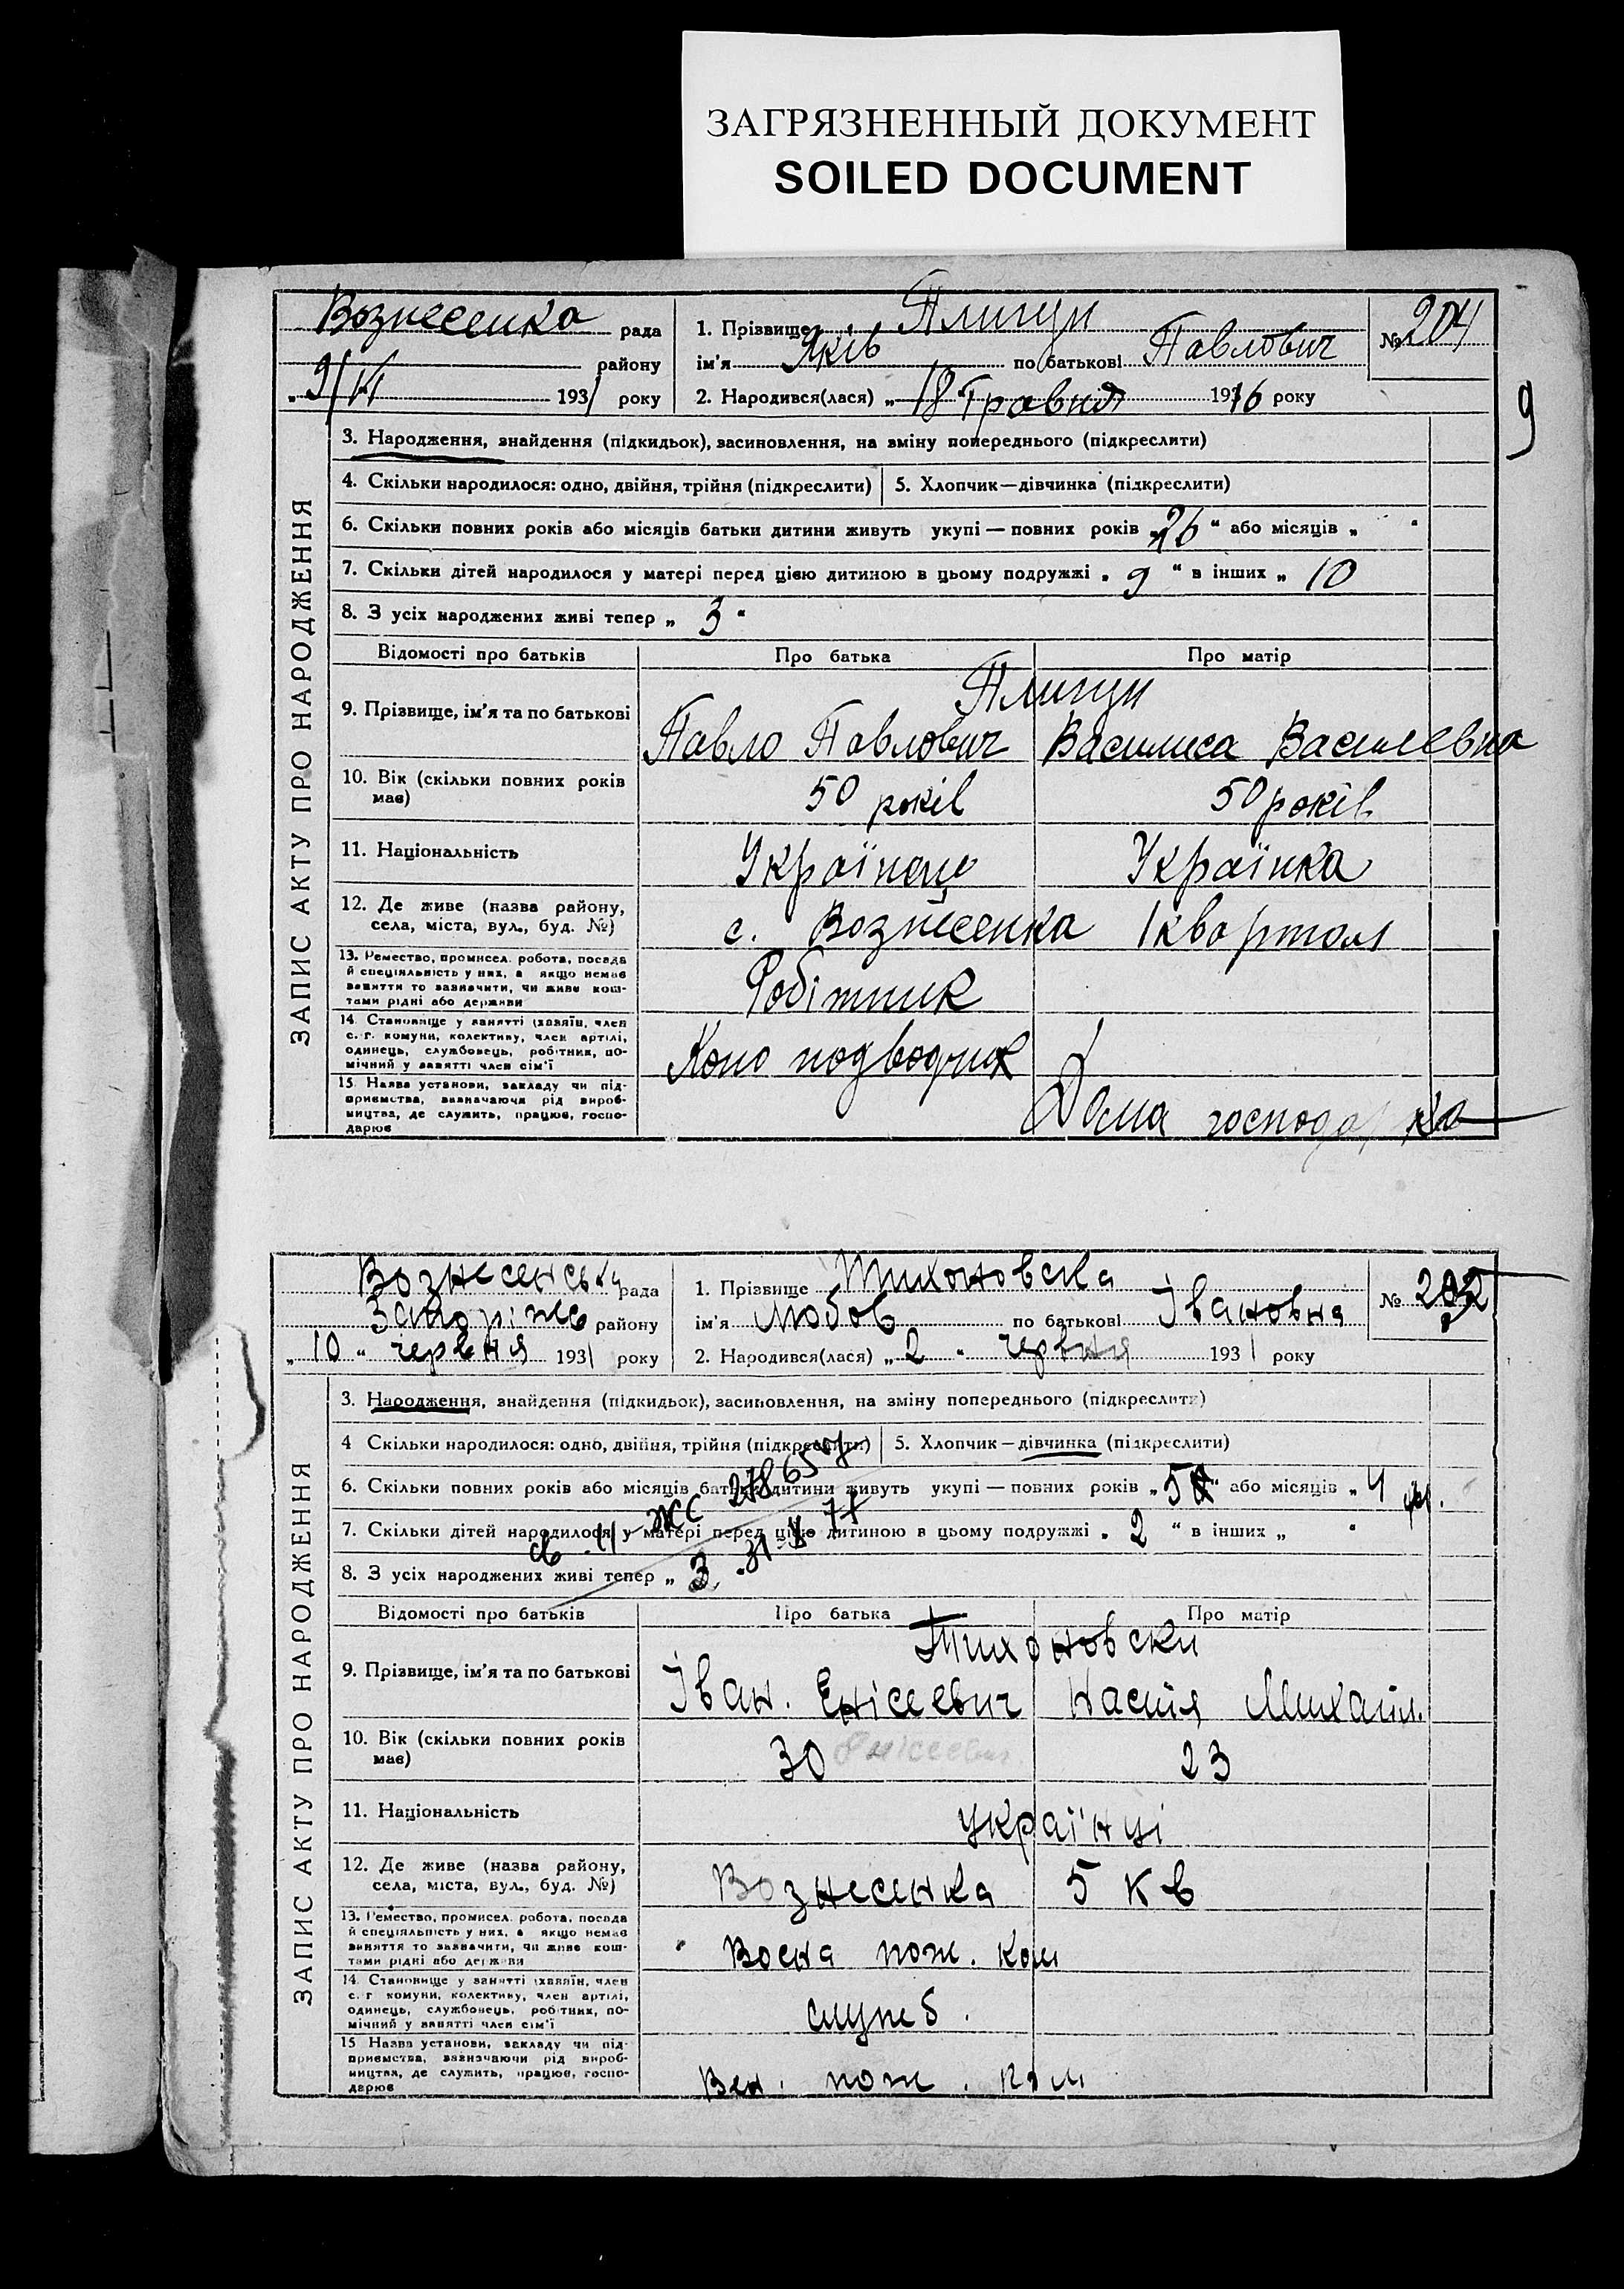 ЗАГРЯЗНЕННЫЙ ДОКУМЕНТ
SOILED DOCUMENT
9
ЗАПИС АКТУ ПРО НАРОДЖЕННЯ
Вознесенка рада
району
1931 року
1. Прізвище Плигун
ім'я Яків по батькові Павлович
2. Народився(лася) „ 18 Травня 1916 року
№ 204
3. Народження, знайдення (підкидьок), засиновлення, на зміну попереднього (підкреслити)
4. Скільки народилося: одно, двійня, трійня (підкреслити) 5. Хлопчик—дівчинка (підкреслити)
6. Скільки повних років або місяців батьки дитини живуть укупі — повних років „26“ або місяців „ “
7. Скільки дітей народилося у матері перед цією дитиною в цьому подружжі „ 9 “ в інших „ 10
8. З усіх народжених живі тепер „ 3 “
Відомості про батьків Про батька Про матір
9. Прізвище, ім'я та по батькові
Плигун
Павло Павлович Василиса Василевна
10. Вік (скільки повних років має) 50 років 50 років
11. Національність Українець Українка
12. Де живе (назва району, села, міста, вул., буд. №) с. Вознесенка 1 квартал
13. Ремество, промисел. робота, посада й спеціяльність у них, а якщо немає заняття то зазначити, чи живе коштами рідні або держави
Робітник
14. Становище у занятті (хазяїн, член с.-г. комуни, колективу, член артілі, одинець, службовець, робітник, помічний у занятті член сім'ї
Коно подводчик
15. Назва установи, закладу чи підприємства, визначаючи рід виробництва, де служить, працює, господарює
Дома господарка
ЗАПИС АКТУ ПРО НАРОДЖЕННЯ
Вознесенська рада
Запоріже району
„ 10 “ червня 1931 року
1. Прізвище Тихоновска
ім'я Любов по батькові Івановна
2. Народився(лася) „ 2 “ червня 1931 року
№ 202
3. Народження, знайдення (підкидьок), засиновлення, на зміну попереднього (підкреслити)
4 Скільки народилося: одно, двійня, трійня (підкреслити) 5. Хлопчик—дівчинка (підкреслити)
6. Скільки повних років або місяців батьки дитини живуть укупі — повних років „ 5 “ або місяців „ 4
7. Скільки дітей народилося у матері перед цією дитиною в цьому подружжі „ 2 “ в інших „ “
8. З усіх народжених живі тепер „ 3 “
Відомості про батьків Про батька Про матір
9. Прізвище, ім'я та по батькові
Тихоновски
Іван. Енісеевич Настя Михайл.
10. Вік (скільки повних років має) 30 23
11. Національність Українці
12. Де живе (назва району, села, міста, вул., буд. №) Вознесенка 5 кв
13. Ремество, промисел. робота, посада й спеціяльність у них, а якщо немає заняття то зазначити, чи живе коштами рідні або держави
Воена пож. ком
14. Становище у занятті (хазяїн, член с.-г комуни, колективу, член артілі, одинець, службовець, робітник, помічний у занятті член сім'ї
служб.
15 Назва установи, закладу чи підприємства, зазначаючи рід виробництва, де служить, працює, господарює
пож. ком